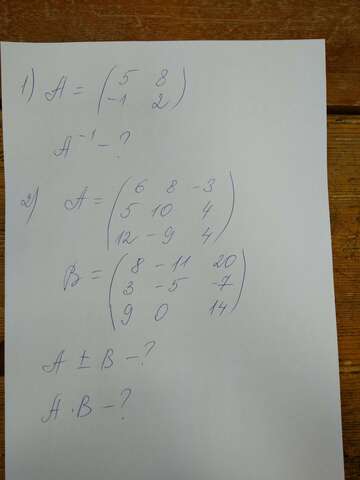 1) A = (5 8
-1 2)
A⁻¹ - ?
2) A = (6 8 -3
5 10 4
12 -9 4)
B = (8 -11 20
3 -5 -7
9 0 14)
A ± B - ?
A · B - ?